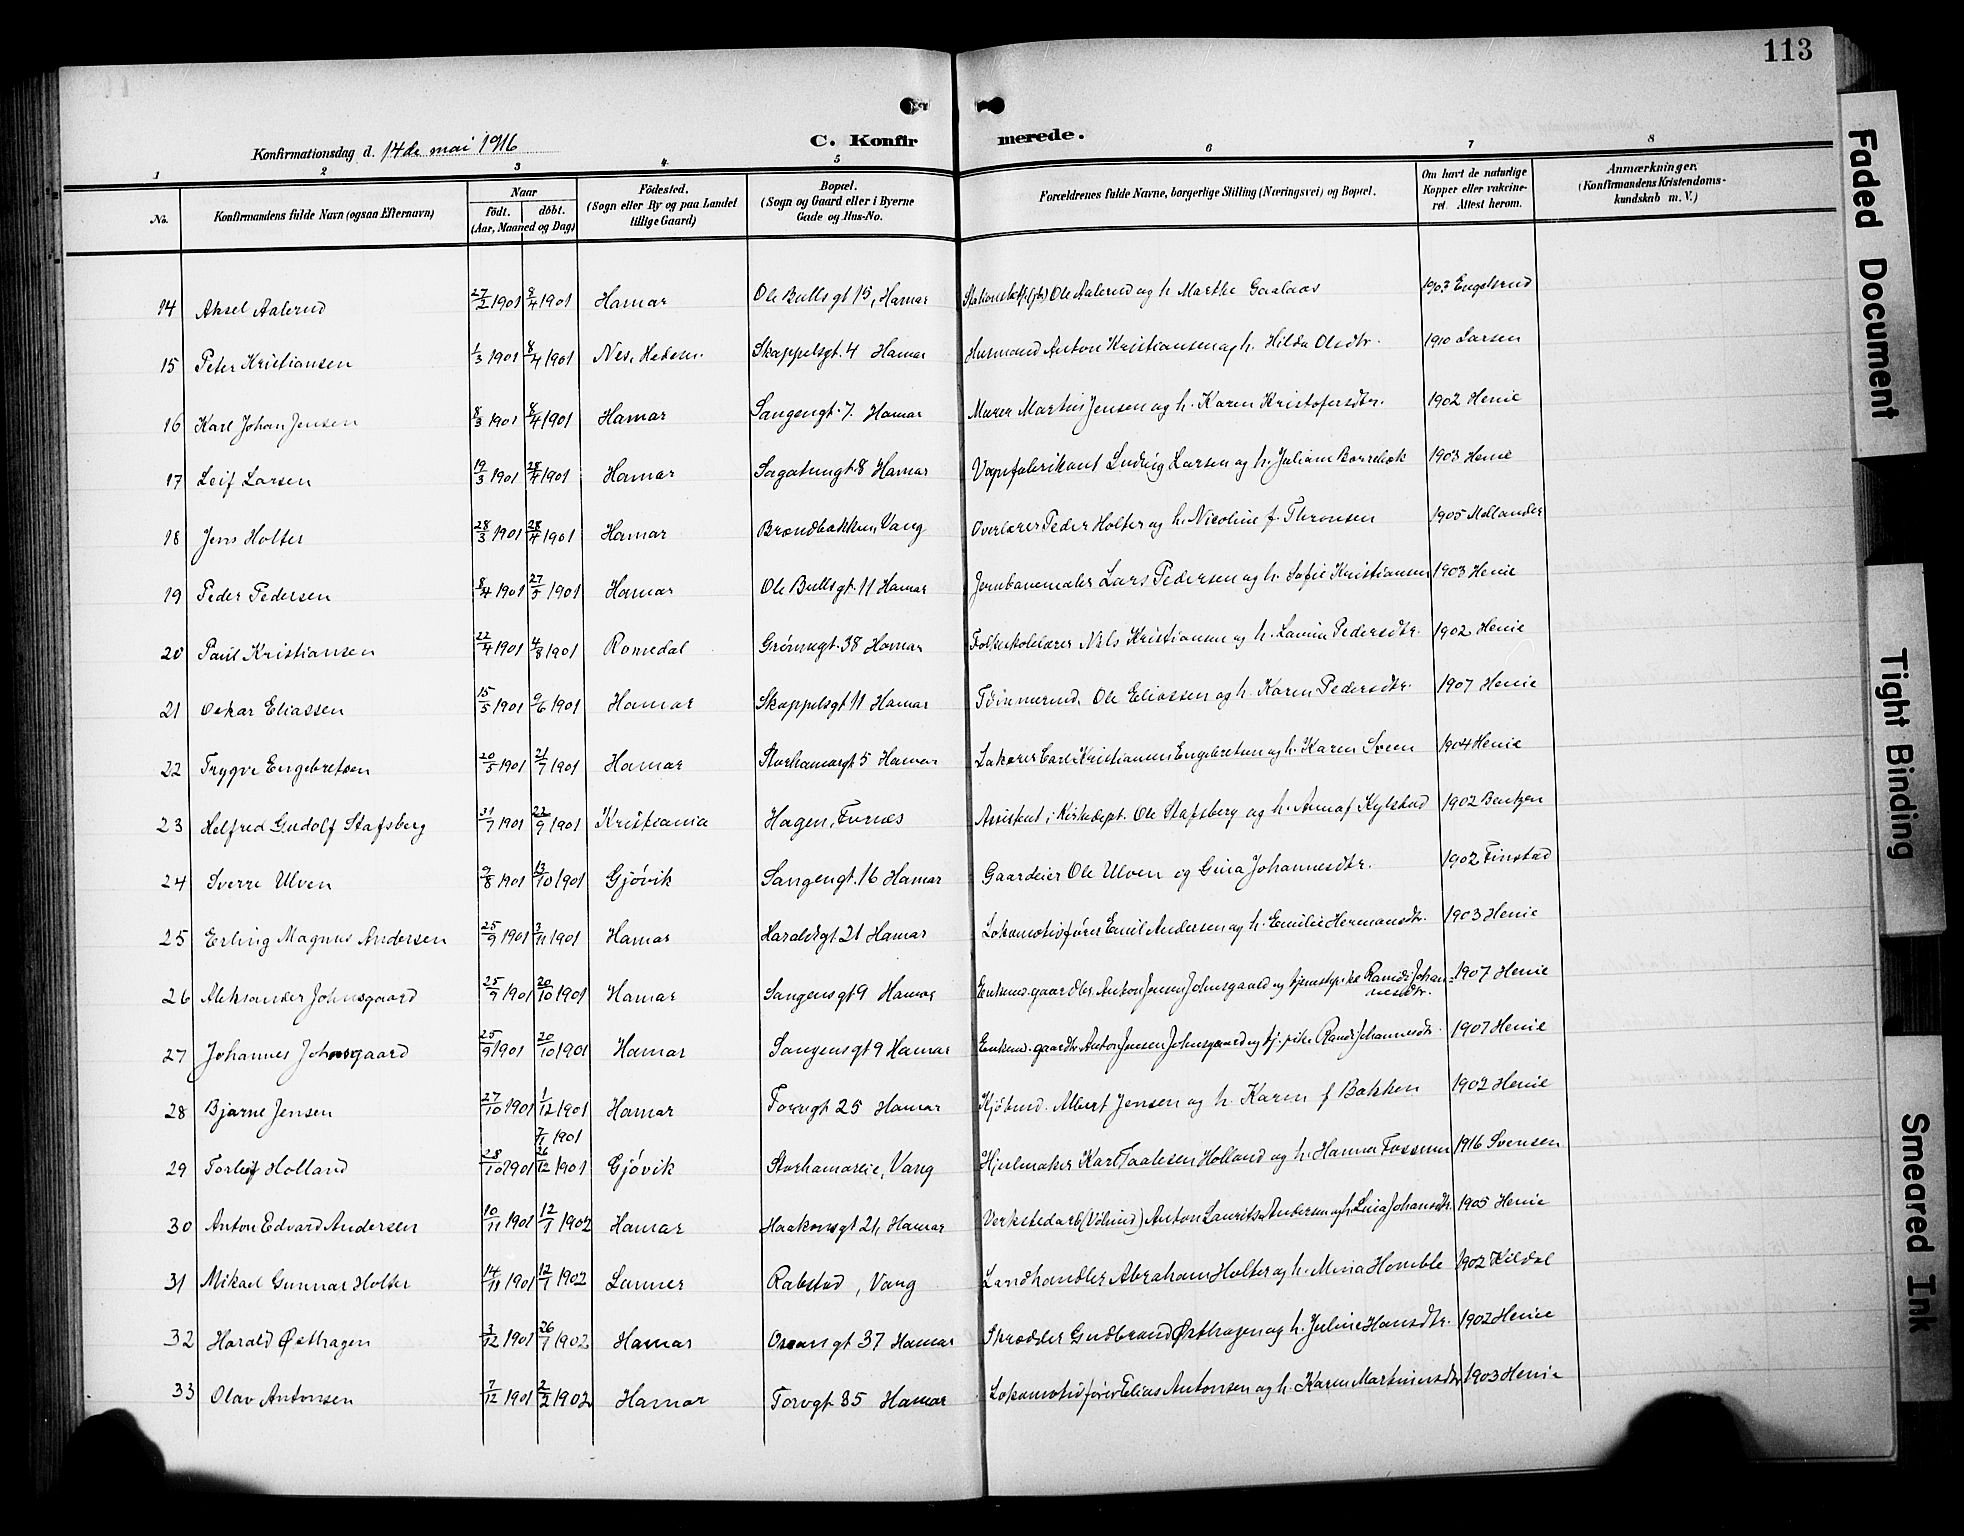 113
C. Konfirmerede.
Konfirmationsdag d. 14de mai 1916
1 2 3 4 5 6 7 8
No.
Konfirmandens fulde Navn (ogsaa Efternavn)
Naar
födt. döbt.
(Aar, Maaned og Dag)
Födested.
(Sogn eller By og paa Landet
tillige Gaard)
Bopæl.
(Sogn og Gaard eller i Byerne
Gade og Hus-No.
Forældrenes fulde Navne, borgerlige Stilling (Næringsvei) og Bopæl.
Om havt de naturlige
Kopper eller vakcine-
ret. Attest herom.
Anmærkninger.
(Konfirmandens Kristendoms-
kundskab m. V.)
14 Aksel Aalerud 27/2 1901 8/4 1901 Hamar Ole Bullsgt 15, Hamar Ole Aalerud og h. Marthe Gaalaas 1903 Engelsrud
15 Peter Kristiansen 1/3 1901 8/4 1901 Nes, Hedem. Skappelsgt. 4 Hamar Husmand Anton Kristiansen og h. Hilda Olsdtr. 1910 Larsen
16 Karl Johan Jensen 8/3 1901 8/4 1901 Hamar Sangengt. 7. Hamar Murer Martin Jensen og h. Karen Kristofersdtr. 1902 Henie
17 Leif Larsen 19/3 1901 28/4 1901 Hamar Sagatungt. 8 Hamar Vognfabrikant Ludvig Larsen og h. Juliane Borrebæk 1903 Henie
18 Jens Holter 28/3 1901 28/4 1901 Hamar Brændbakken, Vang Overlærer Peder Holter og h. Nicoline f. Thronsen 1905 Mellander
19 Peder Pedersen 8/4 1901 27/5 1901 Hamar Ole Bullsgt. 11 Hamar Jernbanemaler Lars Pedersen og h. Sofie Kristiansen 1903 Henie
20 Paul Kristiansen 22/4 1901 4/8 1901 Romedal Grønnegt. 38 Hamar Folkeskolelærer Nils Kristiansen og h. Lovise Pedersdtr. 1902 Henie
21 Oskar Eliassen 15/5 1901 9/6 1901 Hamar Skappelsgt 11 Hamar Tømmermd. Ole Eliassen og h. Karen Pedersdtr. 1907 Henie
22 Trygve Engebretsen 20/5 1901 21/7 1901 Hamar Storhamargt 5 Hamar Lakerer Carl Kristiansen Engebretsen og h. Karen Sveen 1904 Henie
23 Helfred Gudolf Stafsberg 31/7 1901 22/9 1901 Kristiania Hagen, Furnes Assistent i Kirkedept. Ole Stafsberg og h. Anna f Kylstad 1902 Bentzen
24 Sverre Ulven 9/8 1901 13/10 1901 Gjøvik Sangengt. 16 Hamar Gaardeier Ole Ulven og Gina Johannesdtr. 1902 Finstad
25 Erling Magnus Andersen 25/9 1901 3/11 1901 Hamar Haraldsgt 21 Hamar Lokomotivfører Emil Andersen og h. Emilie Hermansdtr. 1903 Henie
26 Aleksander Johnsgaard 25/9 1901 20/10 1901 Hamar Sangensgt 9 Hamar Enkemd. gaardbr. Anton Jensen Johnsgaard og tjenestepike Randi Johan-
nesdtr. 1907 Henie
27 Johannes Johnsgaard 25/9 1901 20/10 1901 Hamar Sangensgt 9 Hamar Enkem. gaardbr. Anton Jensen Johnsgaard og tj. pike Randi Johannesdtr. 1907 Henie
28 Bjarne Jensen 27/10 1901 1/12 1901 Hamar Torvgt 25 Hamar Kjøbmd. Albert Jensen og h. Karen f Bakken 1902 Henie
7/11 1901
29 Torleif Holland 28/10 1901 26/12 1901 Gjøvik Storhamareie, Vang Hjulmaker Karl Taalesen Holland og h. Hanna Fossum 1916 Svensen
30 Anton Edvard Andersen 10/11 1901 12/1 1902 Hamar Haakonsgt 21, Hamar Verkstedarb. (Vølund) Anton Lauritz Andersen og h. Lina Johansdtr. 1905 Henie
31 Mikael Gunnar Holter 14/11 1901 12/1 1902 Lunner Rabstad, Vang Landhandler Abraham Holter og h. Mina Homble 1902 Kildal
32 Harald Østhagen 3/12 1901 26/1 1902 Hamar gt 37 Hamar Skrædder Gudbrand Østhagen og h. Juline Hansdtr. 1902 Henie
33 Olav Antonsen 7/12 1901 2/2 1902 Hamar Torvgt 35 Hamar Lokomotivfører Elias Antonsen og h. Karen Martinusdtr 1903 Henie
Faded Document
Tight Binding
Smeared Ink